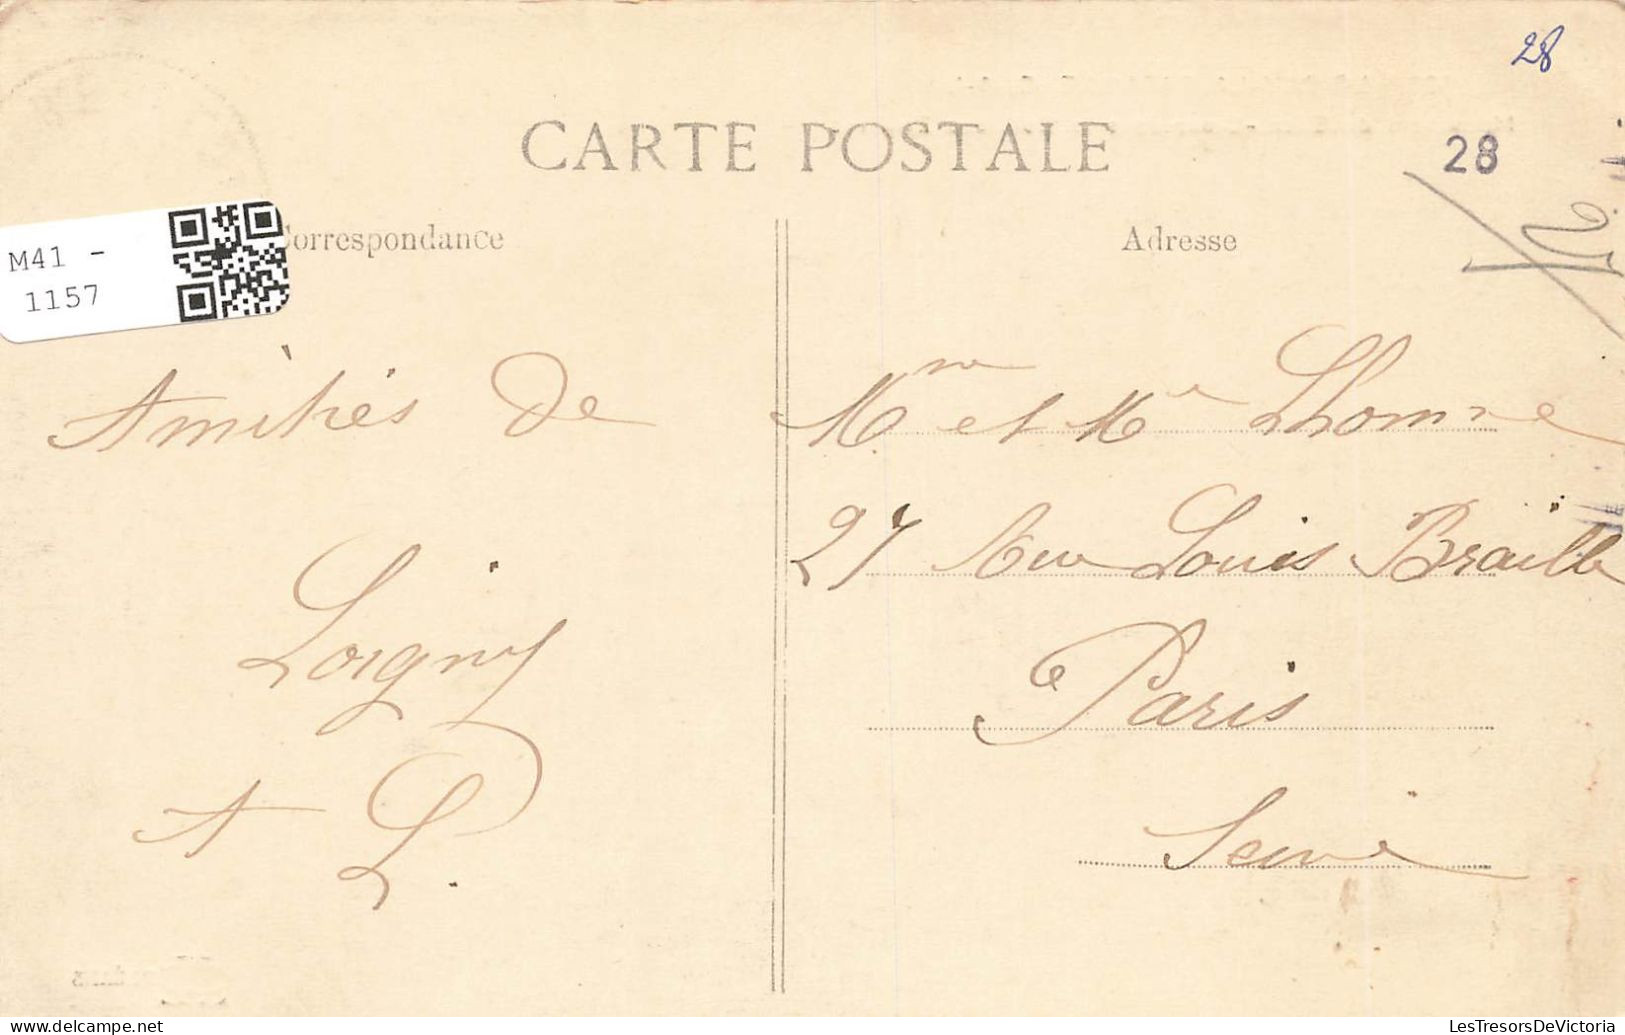 28
CARTE POSTALE
28
M41 -
1157
Correspondance
Adresse
Amitiés de
Loigny
A L.
Mr et Me Lhomme
27 Rue Louis Braille
Paris
Seine
www.delcampe.net
LesTresorsDeVictoria